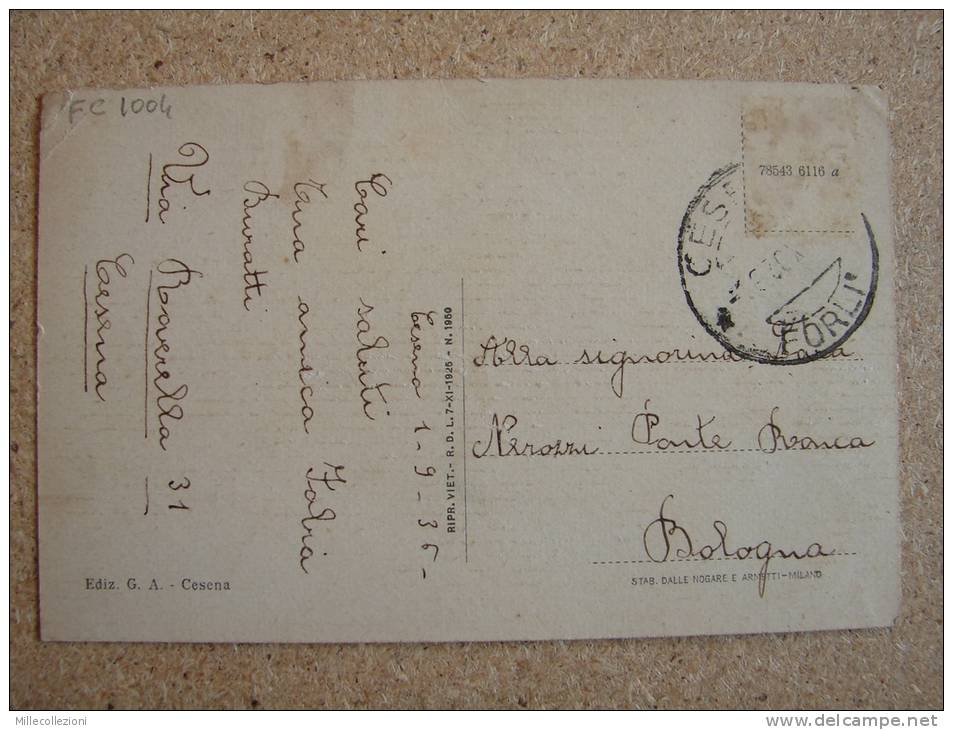 FC 1004
Cesena 1-9-36-
Cari saluti
tua amica Iolria
Buratti
Via Roverella 31
Cesena
Ediz. G. A. - Cesena
RIPR. VIET. - R. D. L. 7-XI-1925 - N. 1950
78543 6116 a
FORLI'
Alla signorina
Nerozzi Ponte Ronca
Bologna
STAB. DALLE NOGARE E ARMETTI-MILANO
Millecollezioni
www.delcampe.net